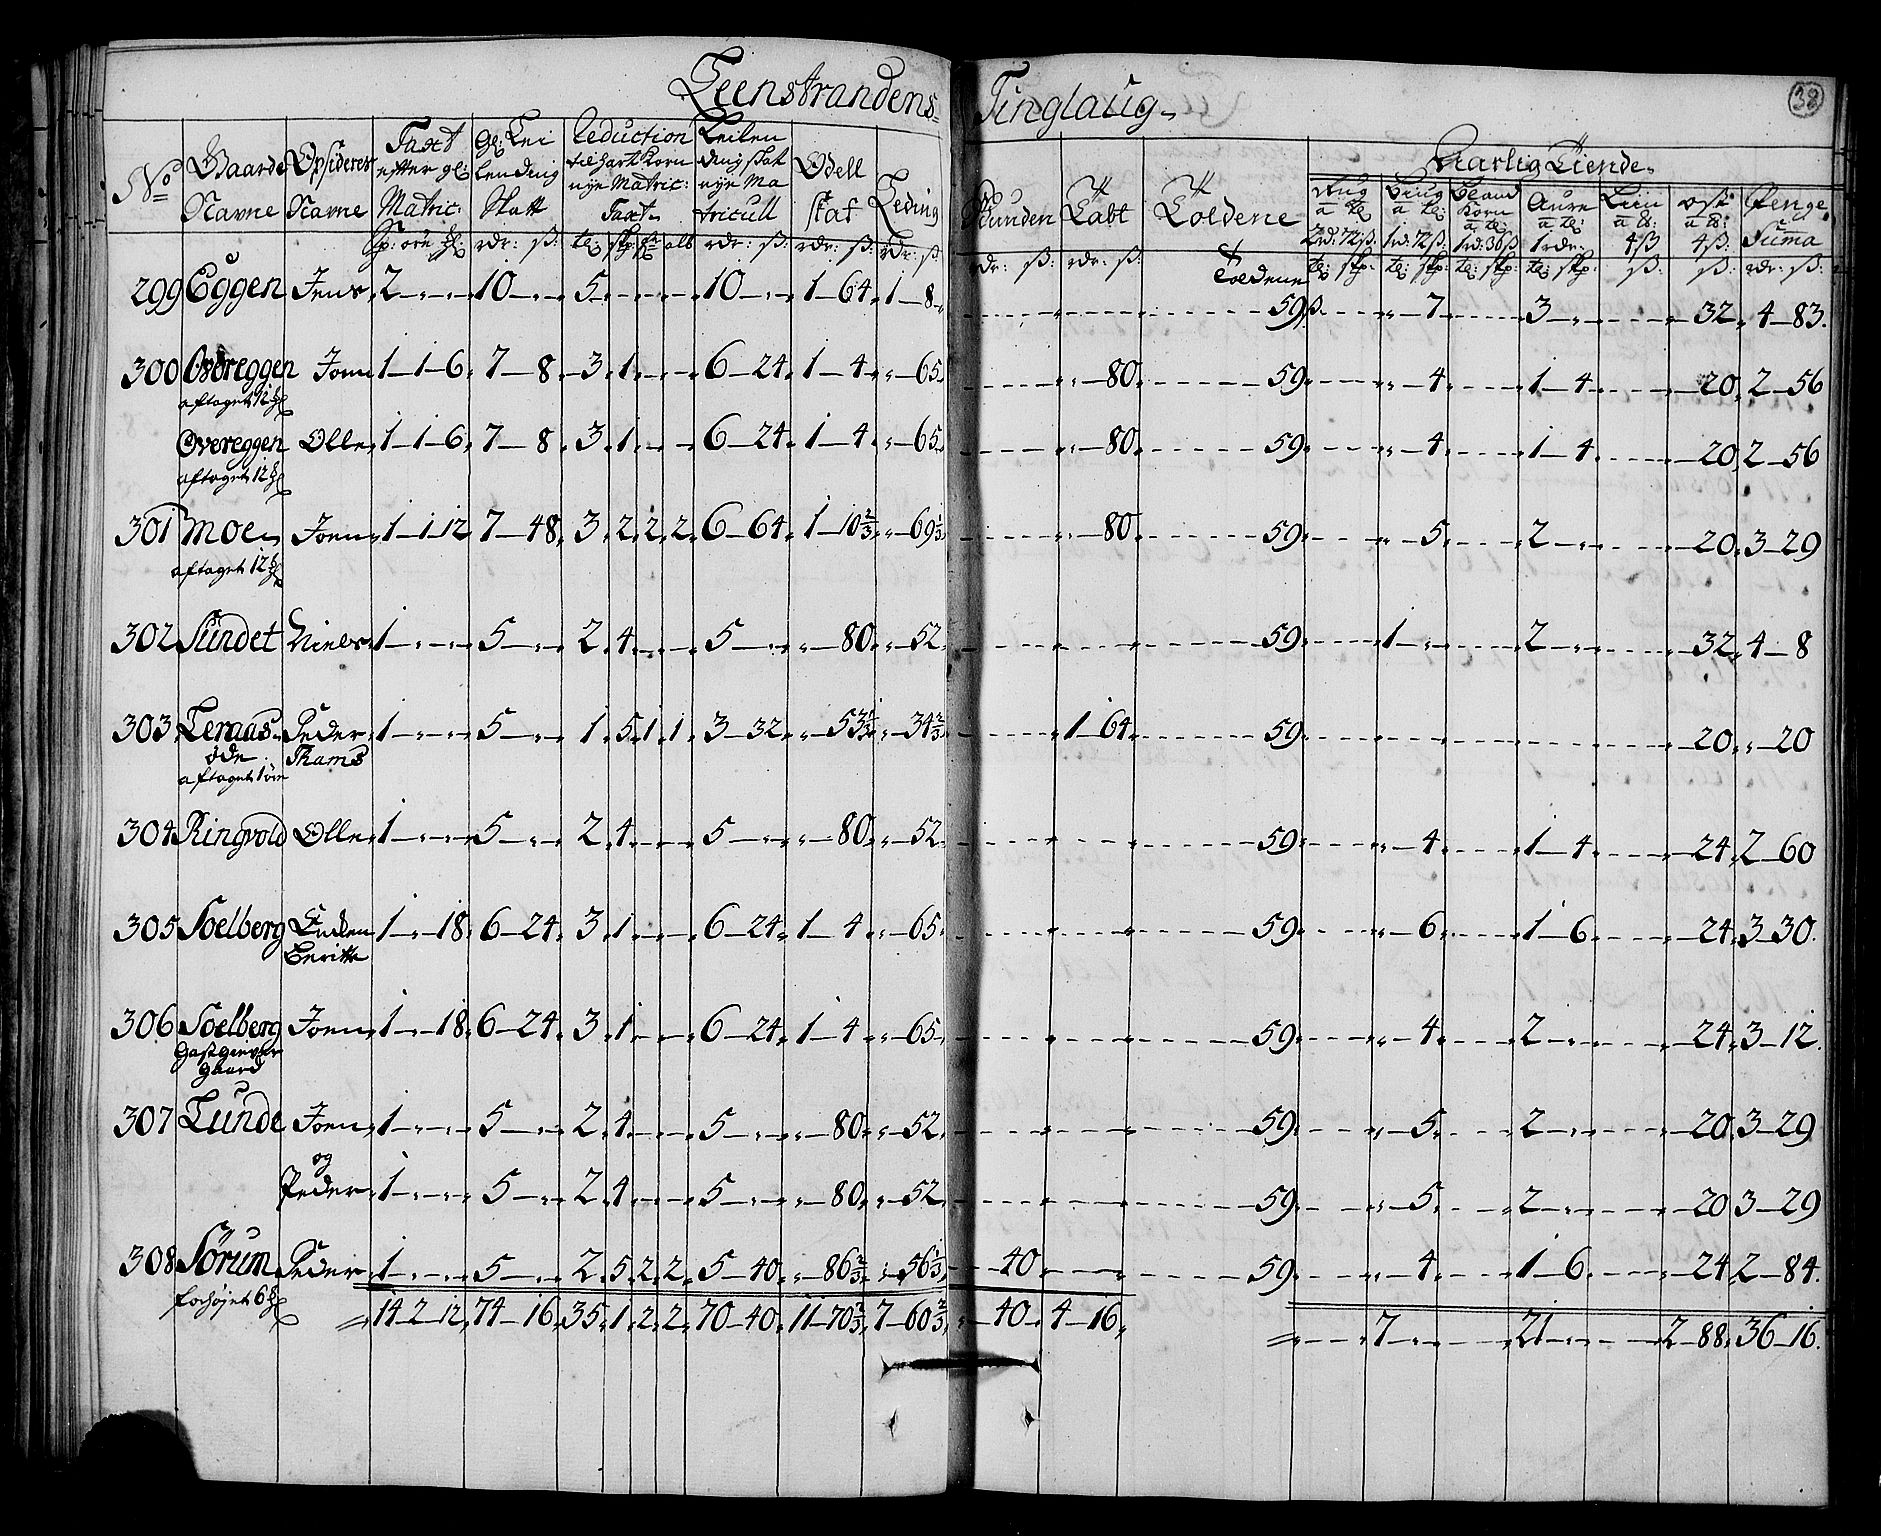 Leenstrandens Tinglaug
38
No Gaarde Navne Opsideres Navne Taxt effter gl: Matric: gl: Lei Lending Skatt Reduction til hart Korn nÿe Matric: Taxt Leilendingskat nÿe Matricull Odell skat Leding
Sp: øre ℔: rdr: ß: tø: skp: alb rdr: ß: rdr: ß: rdr: ß:
Aarlig Tiende
a tø: a tø: Korn a tø: a tø: Liin a ℔: ost a ℔: Penge Summa
2rd: 72ß: 1rd: 72ß: 1rd: 1rdr: 4ß 4ß:
rdr: ß: rdr: ß: tø: skp: tø: skp: tø: skp: tø: skp: ß: ß: rdr: ß:
299 Eggen Jens 2 10 5 10 1-64 1-8 59ß 7 3 32 4-83
300 Overeggen Joen 1-1-6 7-8 3 1 6-24 1-4 65 80 59 4 1-4 20 2-56
aftaget 12 ℔
Overeggen Olle 1-1-6 7-8 3 1 6-24 1-4 65 80 59 4 1-4 20 2-56
aftaget 12 ℔
301 Moe Joen 1-1-12 7-48 3 2 2 2 6-64 1-10⅔ 69⅓ 80 59 5 2 20 3-29
aftaget 12 ℔
302 Sundet Niels 1 5 2 4 5 80 52 59 1 2 32 4-8
303 Leraas Peder 1 5 1 5 1 1 3-32 53⅓ 34⅔ 1-64 59 20 20
øde Thams
aftaget 1 øre
304 Ringvold Olle 1 5 2 4 5 80 52 59 4 1-4 24 2-60
305 Soelberg Enken 1-18 6-24 3 1 6-24 1-4 65 59 6 1-6 24 3-30
Beritte
306 Soelberg Joen 1-18 6-24 3 1 6-24 1-4 65 59 4 2 24 3-12
gaard
307 Lunde Joen 1 5 2 4 5 80 52 59 5 2 20 3-29
og
Peder 1 5 2 4 5 80 52 59 5 2 20 3-29
308 Sörum Peder 1 5 2 5 2 2 5-40 86⅔ 56⅓ 40 59 4 1-6 24 2-84
forhöjet 6 ℔
14-2-12 74-16 35 1 2 2 70-40 11-70⅔ 7-60⅔ 40 4-16 7 21 2-88 36-16